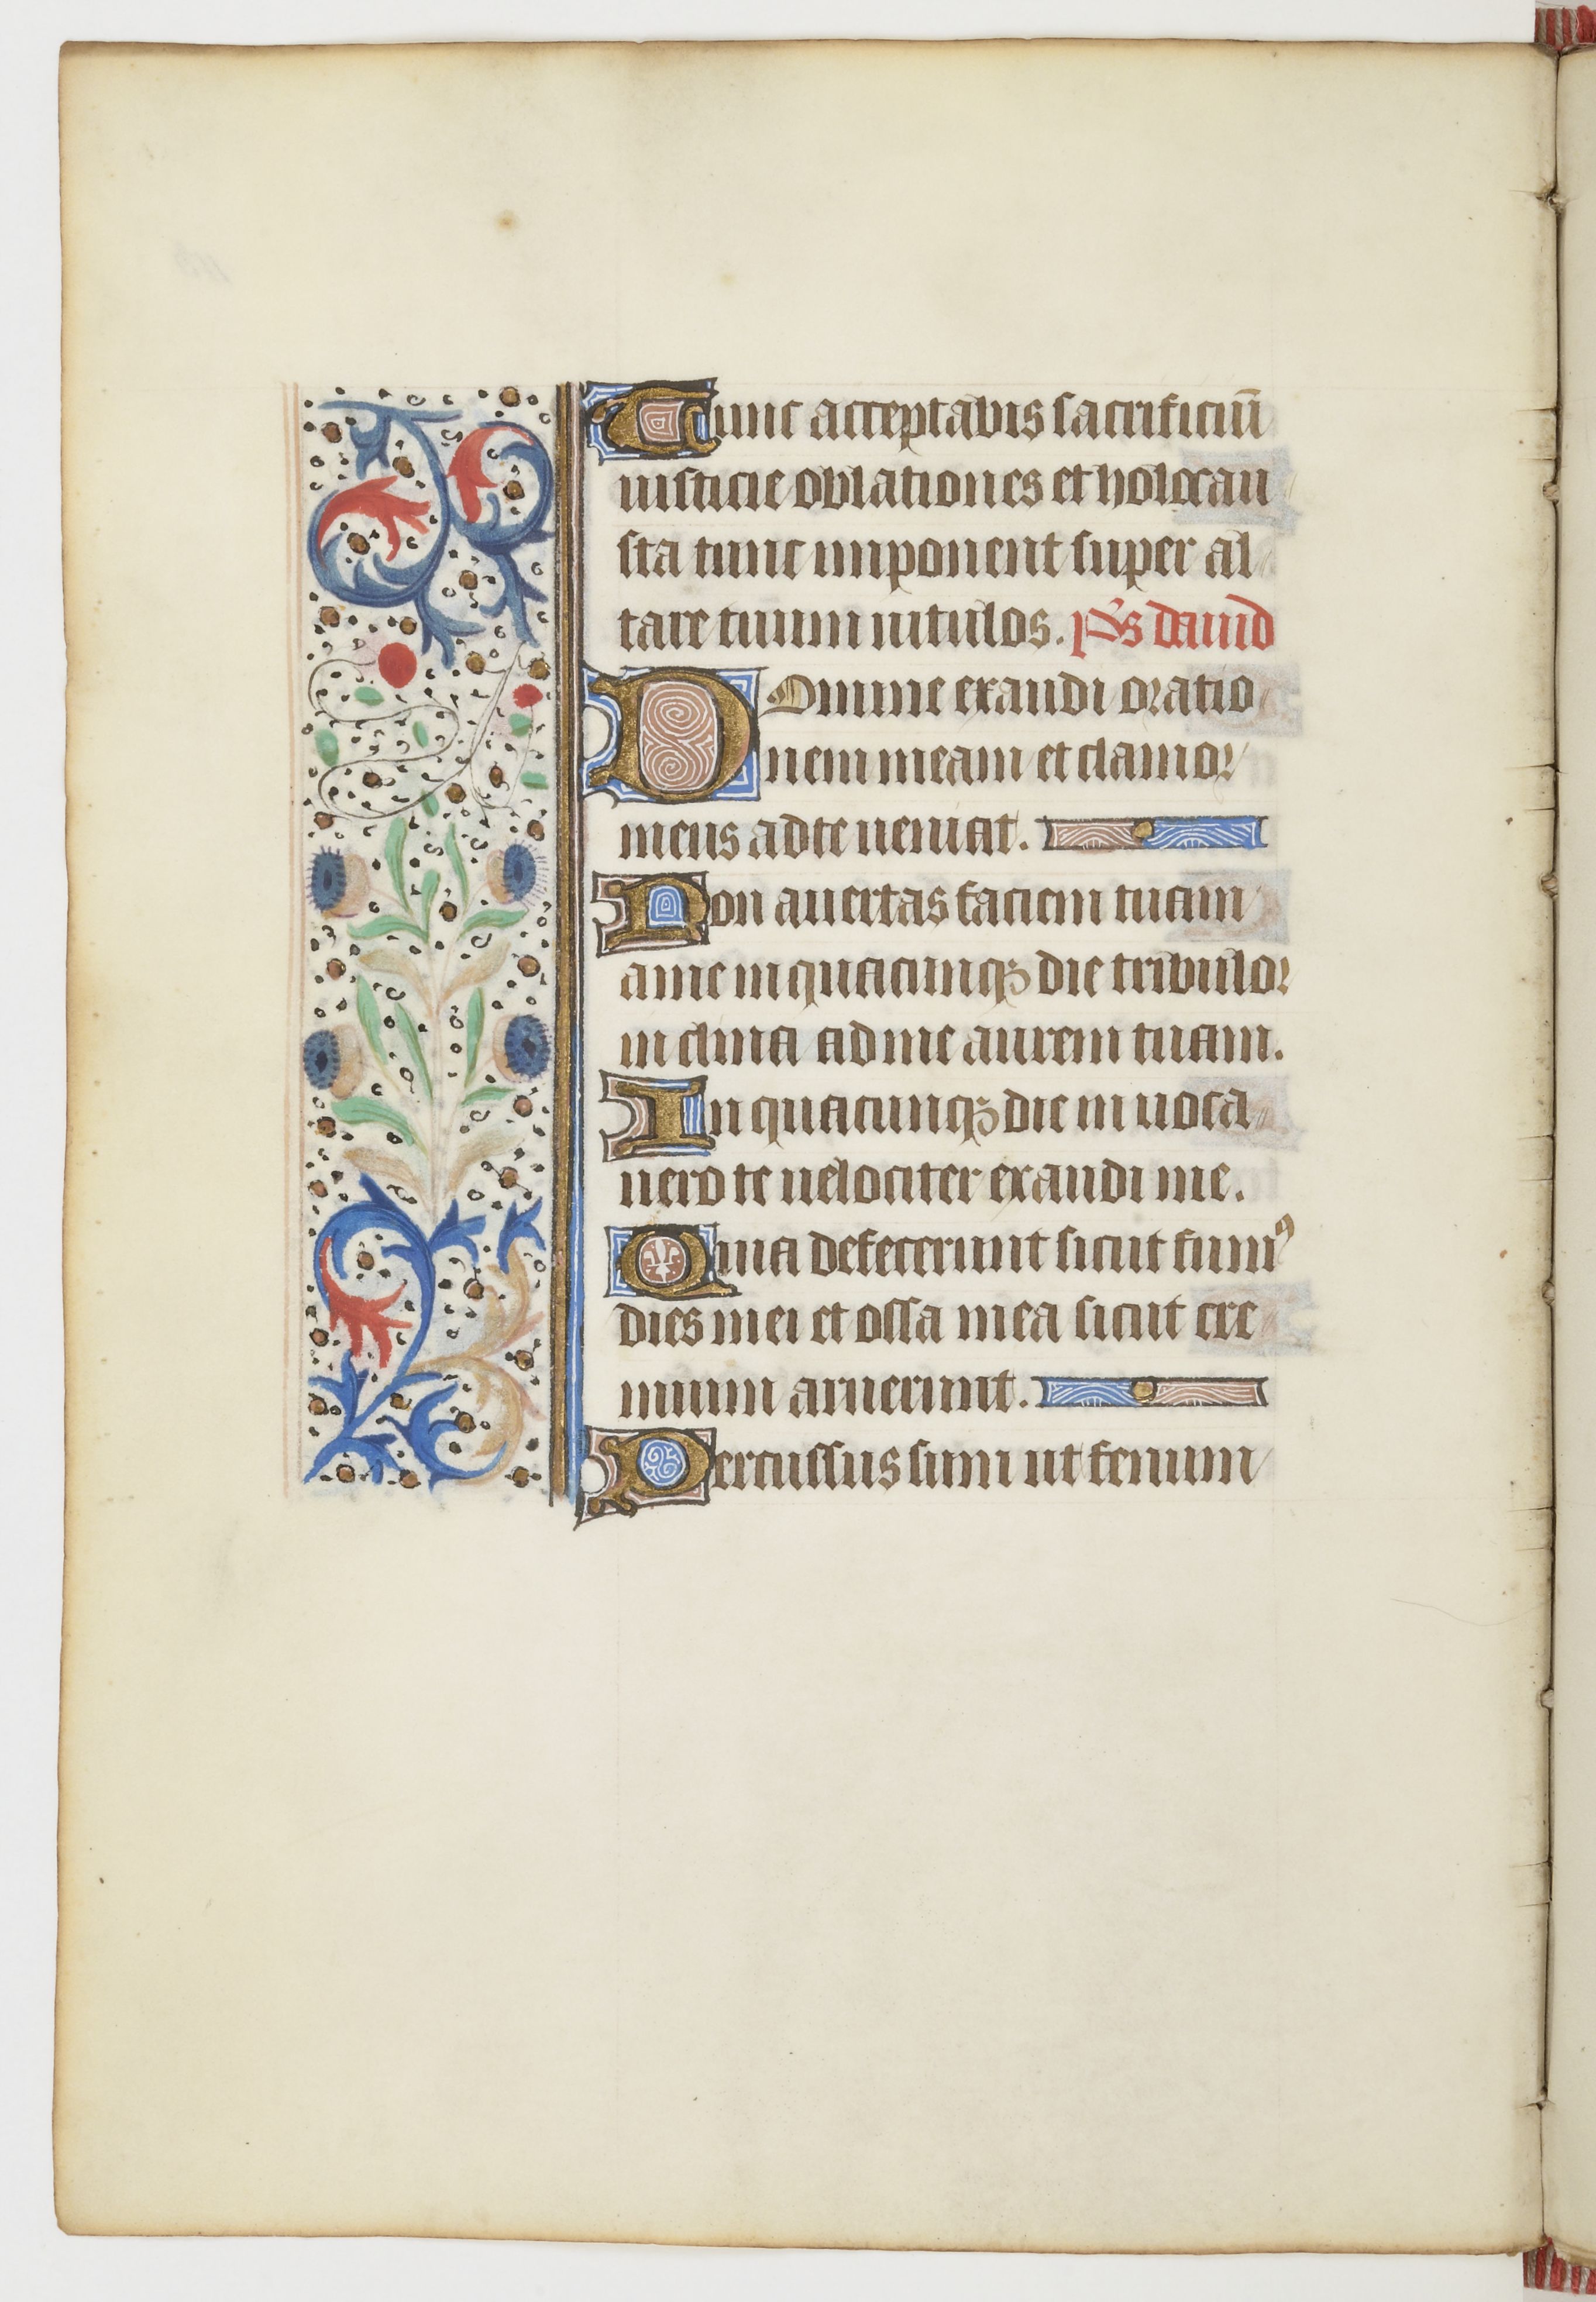 Tunc acceptabis sacrificiū
iusticie oblationes et holocau
sta tunc imponent super al
tare tuum uitulos. Ps dauid
Domine exaudi oratio
nem meam et clamor
meus ad te ueniat.
Non auertas faciem tuam
a me in quacunqꝫ die tribulor
inclina ad me aurem tuam.
In quacunqꝫ die inuoca
uero te uelociter exaudi me.
Quia defecerunt sicut fumꝰ
dies mei et ossa mea sicut cre
mium aruerunt.
Percussus sum ut fenum